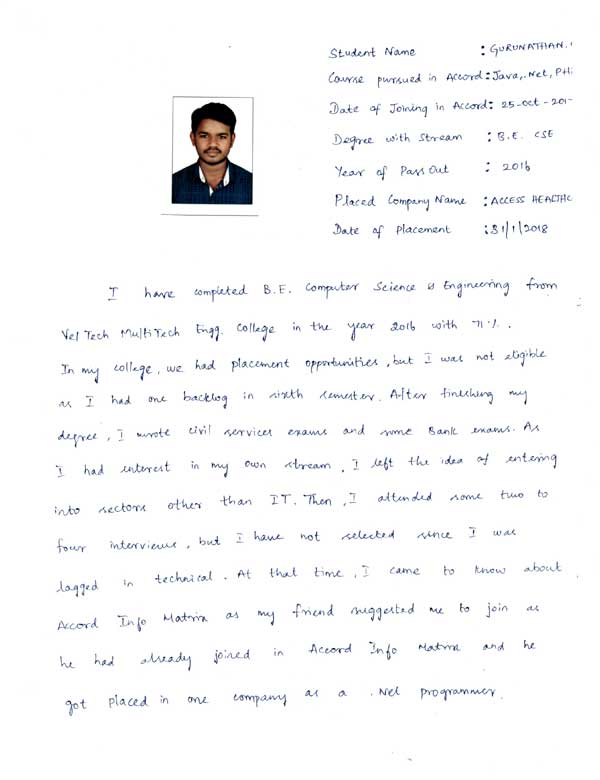 Student Name : GURUNATHAN.
Course pursued in Accord : Java, .Net, PH
Date of Joining in Accord : 25-oct-201
Degree with Stream : B.E. CSE
Year of Pass Out : 2016
Placed Company Name : ACCESS HEALTHC
Date of Placement : 31/1/2018
I have completed B.E. Computer Science & Engineering from
Vel Tech Multi Tech Engg. College in the year 2016 with 71%.
In my college, we had placement opportunities, but I was not eligible
as I had one backlog in sixth semester. After finishing my
degree, I wrote civil services exams and some Bank exams. As
I had interest in my own stream, I left the idea of entering
into sectors other than IT. Then, I attended some two to
four interviews, but I have not selected since I was
lagged in technical. At that time, I came to know about
Accord Info Matrix as my friend suggested me to join as
he had already joined in Accord Info Matrix and he
got placed in one company as a .Net programmer.